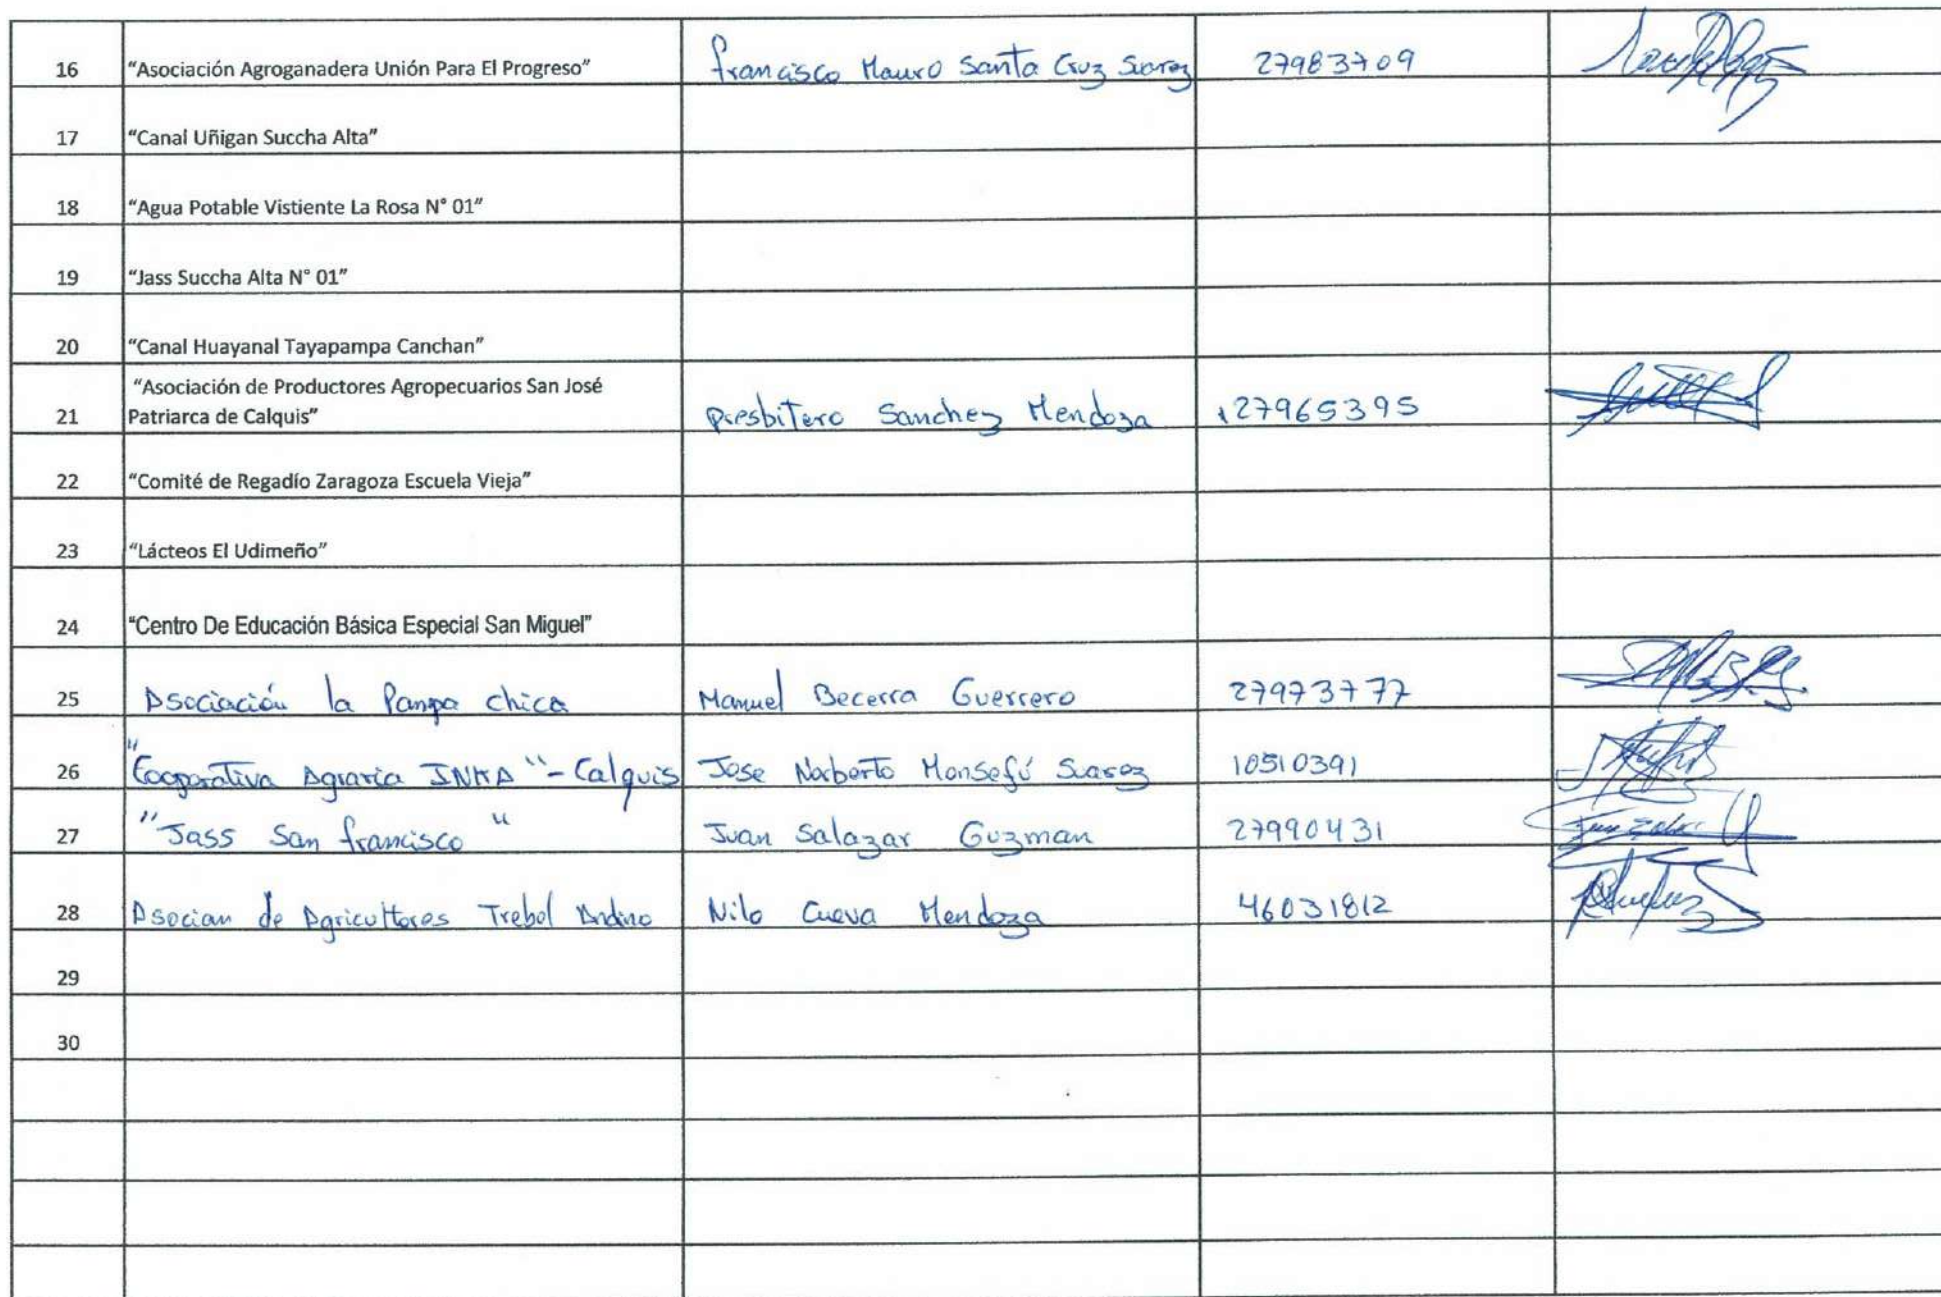 16 "Asociación Agroganadera Unión Para El Progreso" francisco Mauro Santa Cruz Suarez 27983709
17 "Canal Uñigan Succha Alta"
18 "Agua Potable Vistiente La Rosa N° 01"
19 "Jass Succha Alta N° 01"
20 "Canal Huayanal Tayapampa Canchan"
"Asociación de Productores Agropecuarios San José
21 Patriarca de Calquis" Presbitero Sanchez Mendoza 27965395
22 "Comité de Regadío Zaragoza Escuela Vieja"
23 "Lácteos El Udimeño"
24 "Centro De Educación Básica Especial San Miguel"
25 Asociación la Pampa chica Manuel Becerra Guerrero 27973777
26 "Cooperativa Agraria INKA" - Calquis Jose Norberto Monsefú Suarez 10510391
27 "Jass San francisco" Juan Salazar Guzman 27990431
28 Asocian de Agricultores Trebol Andino Nilo Cueva Mendoza 46031812
29
30